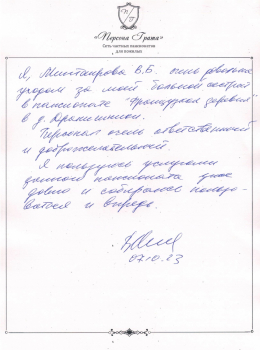 "Персона Грата"
Сеть частных пансионатов
для пожилых
Я, В.Б. очень довольна
уходом за моей больной сестрой
в пансионате "Французская деревня"
в д.
Персонал очень ответственный
и доброжелательный.
Я пользуюсь услугами
данного пансионата уже
давно и собираюсь пользо-
ваться и впредь.
07.10.23